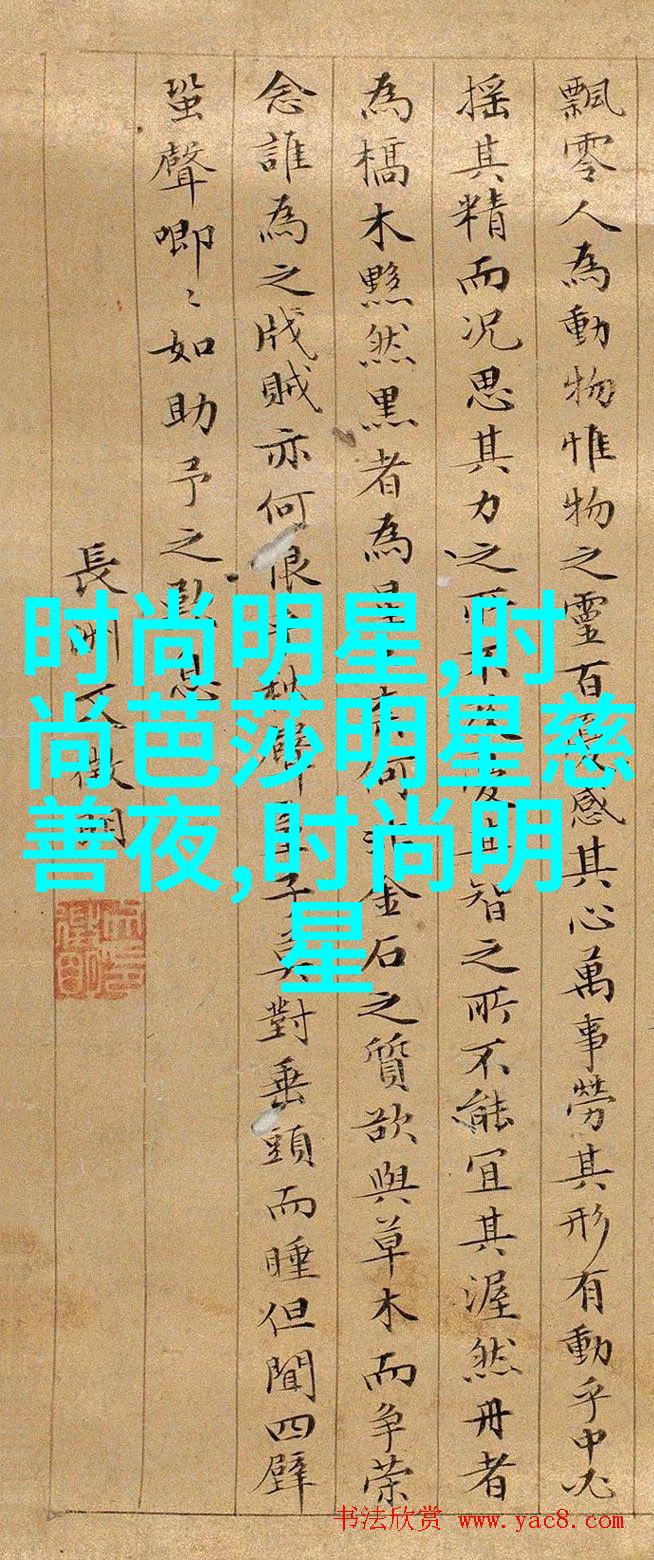 飄零人為動物惟物之靈百憂感其心萬事勞其形有動乎中必
搖其精而況思其力之所不及憂其智之所不能宜其渥然丹者
為槁木黟然黑者為星奈何非金石之質欲與草木而争荣
念誰為之戕賊亦何恨乎秋聲童子莫對垂頭而睡但聞四壁
蛩聲唧〻如助予之歎息
長洲文徵明
时尚明星,时
尚芭莎明星慈
善夜,时尚明
星
书法欣赏 www.yac8.com